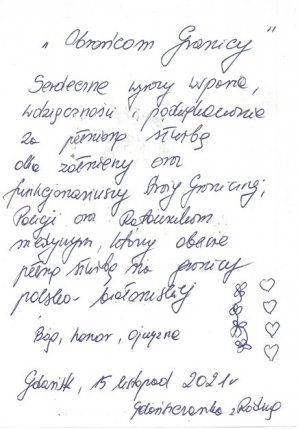 "Obrońcom Granicy"
Serdeczne wyrazy wsparcia,
wdzięczności i podziękowania
za pełnioną służbę
dla żołnierzy oraz
funkcjonariuszy Straży Granicznej,
Policji oraz Ratownikom
medycznym, którzy obecnie
pełnią służbę na granicy
polsko-białoruskiej
Bóg, honor, ojczyzna
Gdańsk, 15 listopad 2021r
Gdańszczanka z Rodziną